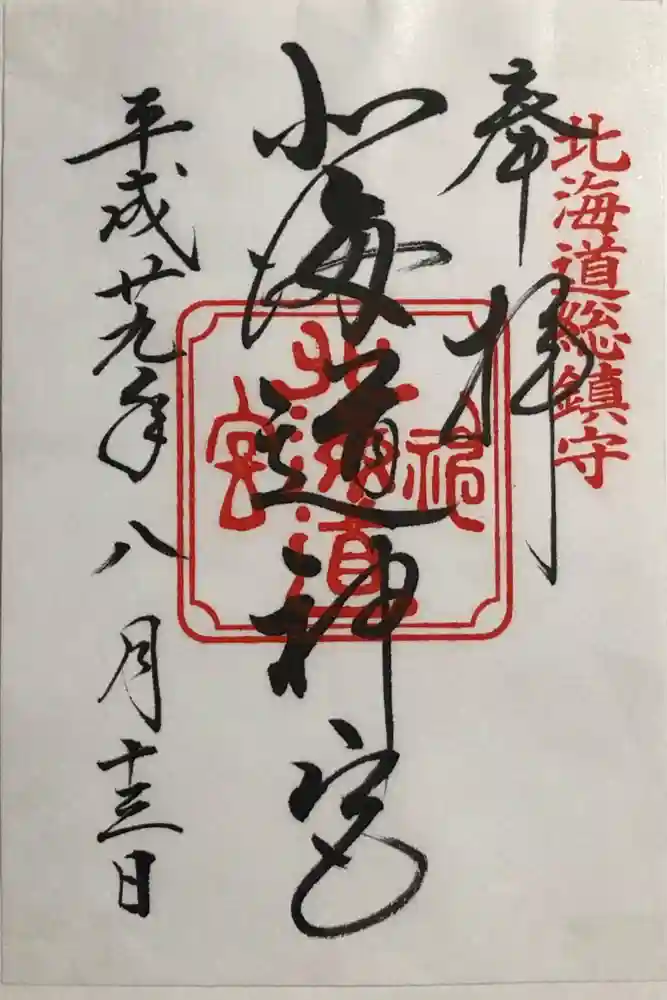 北海道総鎮守
奉拝
北海道神宮
平成廿九年八月十三日
北海道
神
宮